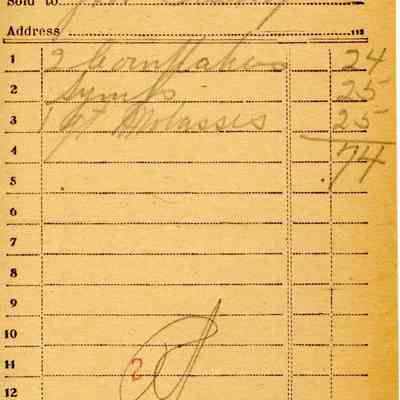 Sold to
Address 113
1 2 Cornflakes 24
2 Syrup 25
3 1 qt Molasses 25
4 74
5
6
7
8
9
10
11 2
12